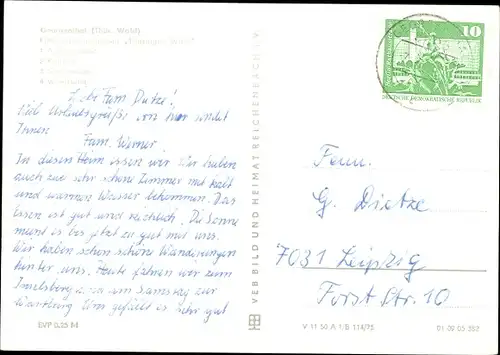 Georgenthal (Thür. Wald)
Liebe Fam. Dietze!
Viel Urlaubsgrüße von hier sendet
Ihnen
Fam. Werner.
In diesen Heim essen wir. Wir haben
auch zwei sehr schöne Zimmer mit kalt
und warmen Wasser bekommen. Das
Essen ist gut und reichlich. Die Sonne
meint es bis jetzt zu gut mit uns.
Wir haben schon schöne Wanderungen
hinter uns. Heute fahren wir zum
Inselsberg u. am Samstag zur
Wartburg. Uns gefällt es sehr gut
EVP 0,25 M
VEB BILD UND HEIMAT REICHENBACH I. V.
10
DEUTSCHE DEMOKRATISCHE REPUBLIK
Fam.
G. Dietze
7031 Leipzig
Forst Str. 10
V 11 50 A 1/B 114/75
01 09 05 352